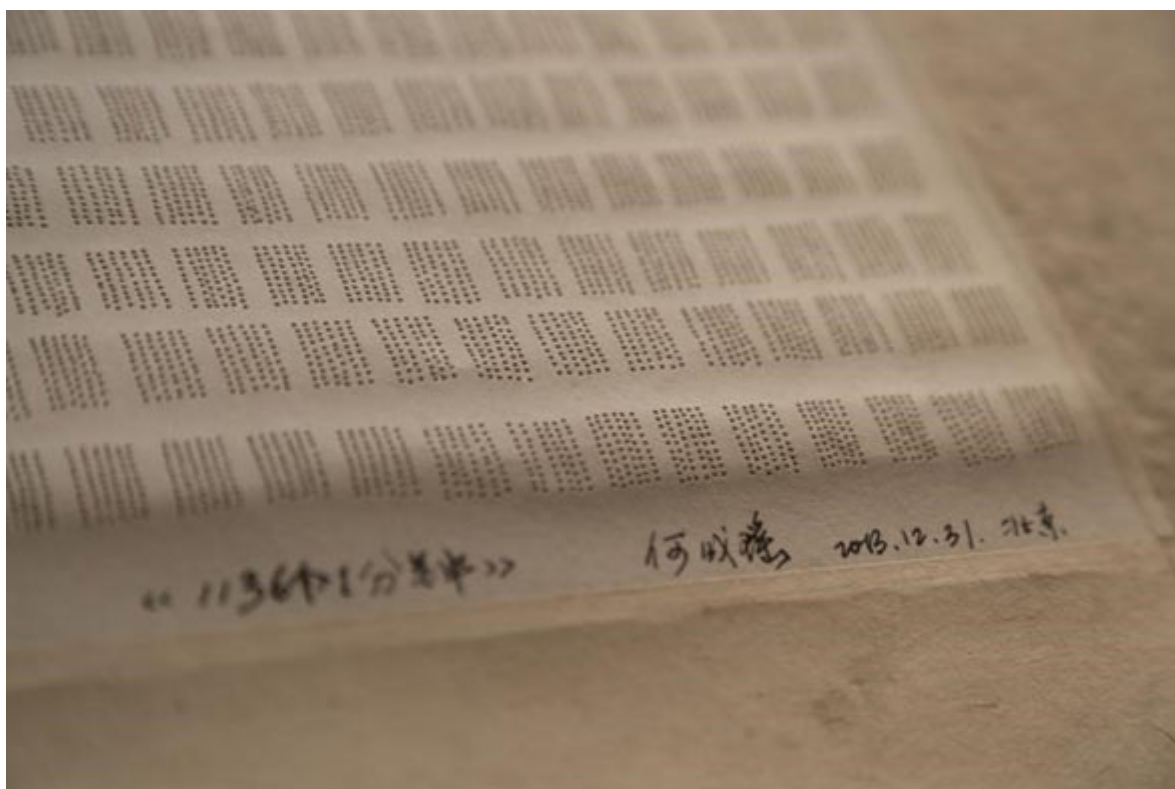 《1136个1分钟》 何成瑶 2013.12.31. 北京.